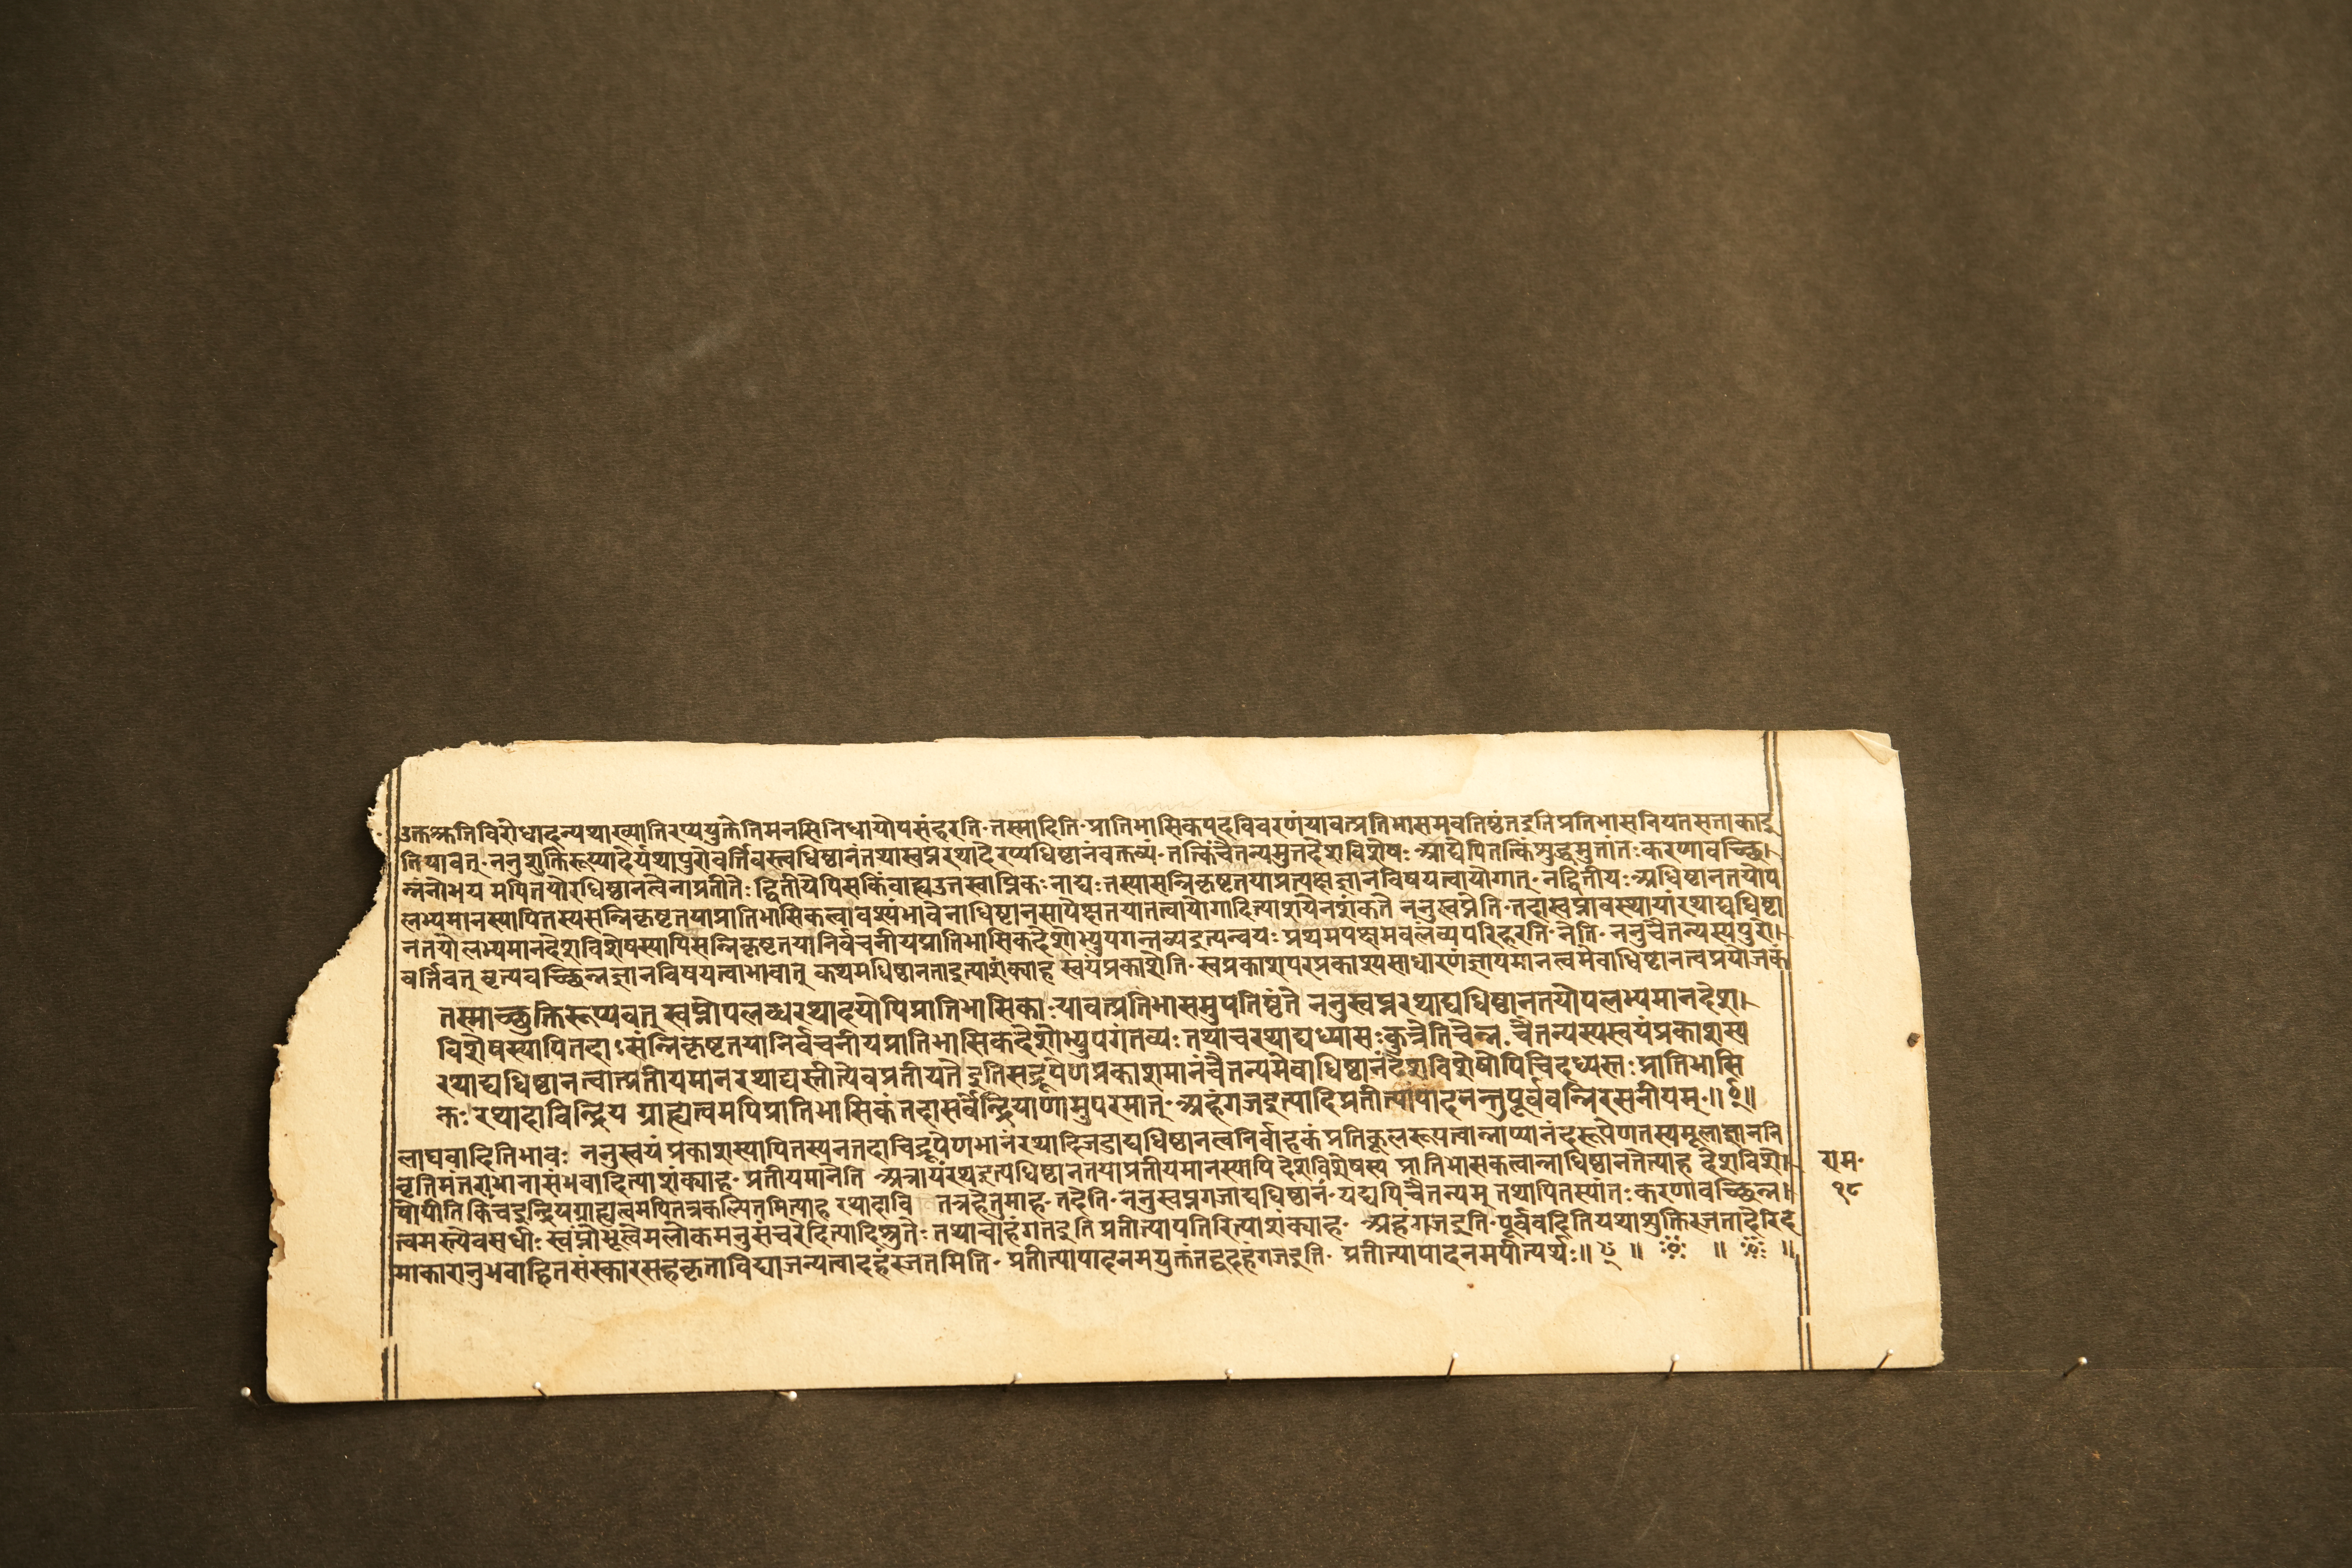 उक्तक्षतिविरोधादन्यथाख्यातिरप्ययुक्तेतिमनसिनिधायोपसंहरति॰तस्मादिति॰प्रातिभासिकपदविवरणंयावत्प्रतिभासमवतिष्ठंतइतिप्रतिभासनियतसत्ताकाइ
तियावत्॰ननुशुक्तिरूप्यादेर्यथापुरोवर्त्तिवस्त्वधिष्ठानंतथास्वप्नरथादेरप्यधिष्ठानंवक्तव्य॰तत्किंचैतन्यमुतदेशविशेषः आद्येपितत्किंशुद्धमुतांतःकरणावच्छि।
न्नंनोभयमपितयोरधिष्ठानत्वेनाप्रतीतेः द्वितीयेपिसकिंवाह्यउतस्वाप्निकःनाद्यःतस्यासन्निकृष्टतयाप्रत्यक्षज्ञानविषयत्वायोगात्॰नद्वितीयःअधिष्ठानतयोप
लभ्यमानस्यापितस्यसन्निकृष्टतयाप्रातिभासिकत्वावश्यंभावेनाधिष्ठानसापेक्षतयातत्वायोगादित्याशयेनशंकते ननुस्वप्नेति॰तदास्वप्नावस्थायांरथाद्यधिष्ठा
नतयोलभ्यमानदेशविशेषस्यापिसन्निकृष्टतयानिर्वचनीयप्रातिभासिकदेशोभ्युपगन्तव्यइत्यन्वयः प्रथमपक्षमवलंव्यपरिहरति॰नेति॰ननुचैतन्यस्यपुरो।
वर्त्तिवत् वृत्यवच्छिन्नज्ञानविषयत्वाभावात् कथमधिष्ठानताइत्याशंक्याह स्वयंप्रकाशेति॰स्वप्रकाशपरप्रकाश्यसाधारणंज्ञायमानत्वमेवाधिष्ठानत्वप्रयोजकं
तस्माच्छुक्तिरूप्यवत् स्वप्नोपलब्धरथादयोपिप्रातिभासिकाःयावत्प्रतिभासमुपतिष्ठंते ननुस्वप्नरथाद्यधिष्ठानतयोपलभ्यमानदेश।
विशेषस्यापितदाऽसंन्निकृष्टतयानिर्वचनीयप्रातिभासिकदेशोभ्युपगंतव्यः तथाचरथाद्यध्यासःकुत्रेतिचेन्न॰चैतन्यस्यस्वयंप्रकाशस्य
रथाद्यधिष्ठानत्वात्प्रतीयमानरथाद्यस्तीत्येवप्रतीयते इतिसद्रूपेणप्रकाशमानंचैतन्यमेवाधिष्ठानंदेशविशेषोपिचिदध्यस्तःप्रातिभासि
कः रथादाविन्द्रिय ग्राह्यत्वमपिप्रातिभासिकंतदासर्वेन्द्रियाणामुपरमात्॰अहंगजइत्यादिप्रतीत्यापादनन्तुपूर्ववन्निरसनीयम्॰॥
लाघवादितिभावः ननुस्वयंप्रकाशस्यापितस्यनतदाचिद्रूपेणभानंरथादिजडाद्यधिष्ठानत्वनिर्वाहकंप्रतिकूलरूपत्वान्नाप्यानंदरूपेणतस्यमूलाज्ञाननि
वृतिमंतराभानासंभवादित्याशंक्याह॰प्रतीयमानेति अत्रायंरथइत्यधिष्ठानतयाप्रतीयमानस्यापि देशविशेषस्य प्रातिभासकत्वान्नाधिष्ठानतेत्याह देशविशे।
षोपीति किंचइन्द्रियग्राह्यत्वमपितत्रकल्पितमित्याह रथादावि तत्रहेतुमाह॰तदेति॰ननुस्वप्नगजाद्यधिष्ठानं॰यद्यपिचैतन्यम् तथापितस्यांतःकरणावच्छिन्न।
त्वमस्त्येवसधीः स्वप्नोभूत्वेमंलोकमनुसंचरेदित्यादिश्रुतेः तथाचाहंगतइति प्रतीत्यापतिरित्याशंक्याह॰ अहंगजइति॰पूर्ववदितियथाशुक्तिरजतादेरिद
माकारानुभवाद्धितसंस्कारसहकृताविद्याजन्यत्वादहंरजतमिति॰ प्रतीत्यापादनमयुक्तंतद्वदहंगजइति॰ प्रतीत्यापादनमपीत्यर्थः॥ ॥ ॥ ॥
राम॰
१८